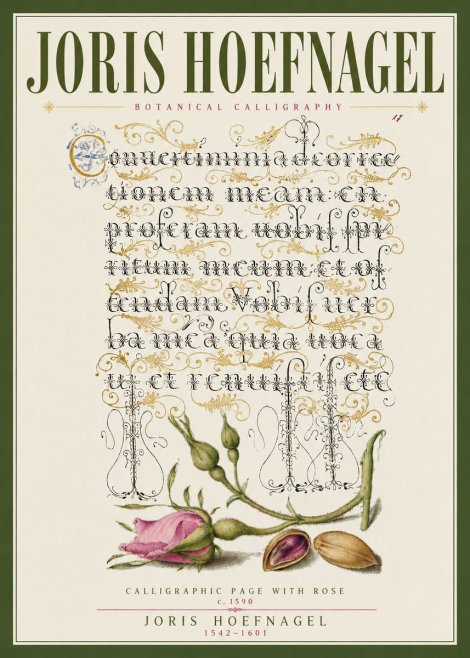 JORIS HOEFNAGEL
BOTANICAL CALLIGRAPHY
17
Conuertimini ad correc
tionem meam: en
proferam uobis spi
ritum meum, et os
tendam Vobis uer
ba mea quia uoca
ui et renuistis
CALLIGRAPHIC PAGE WITH ROSE
c. 1590
JORIS HOEFNAGEL
1542–1601